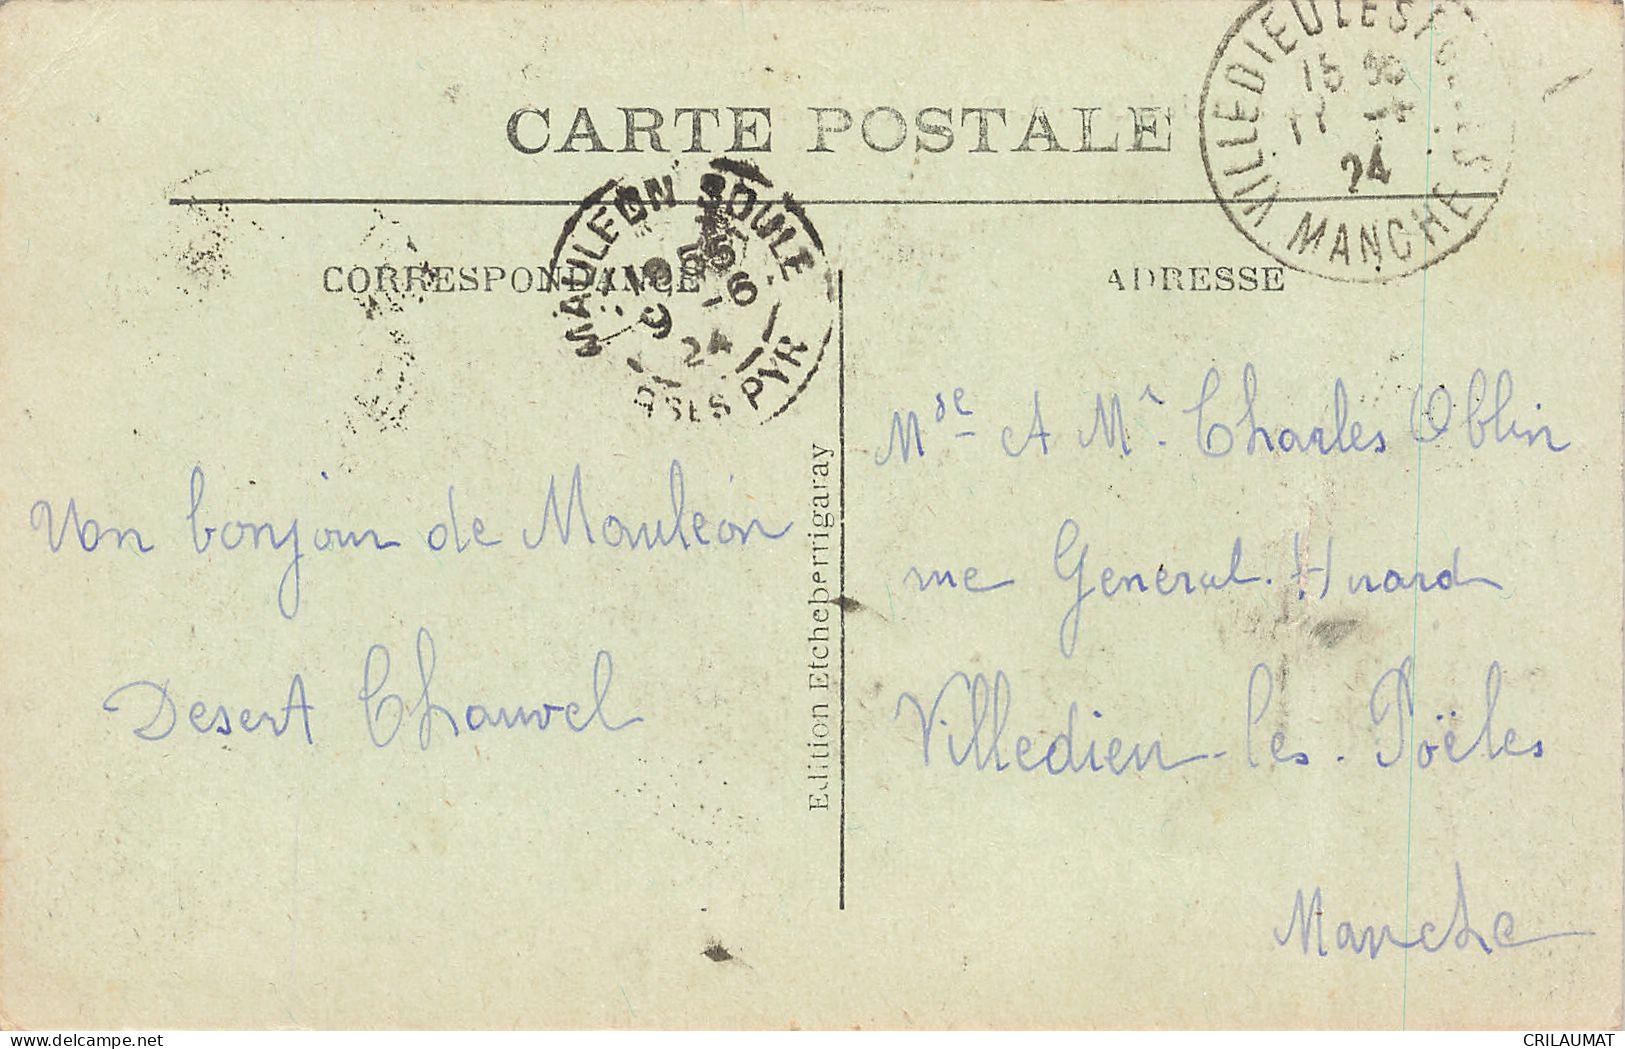 CARTE POSTALE
CORRESPONDANCE
ADRESSE
MAULEON SOULE
9 -6
24
BSES PYR
VILLEDIEU LES
24
MANCHE
Un bonjour de Mauléon
Desert Chauvel
Edition Etcheberrigaray
Mde et Mr Charles Oblin
rue General. Huard
Villedieu-les-Poëles
Manche
delcampe.net
CRILAUMAT